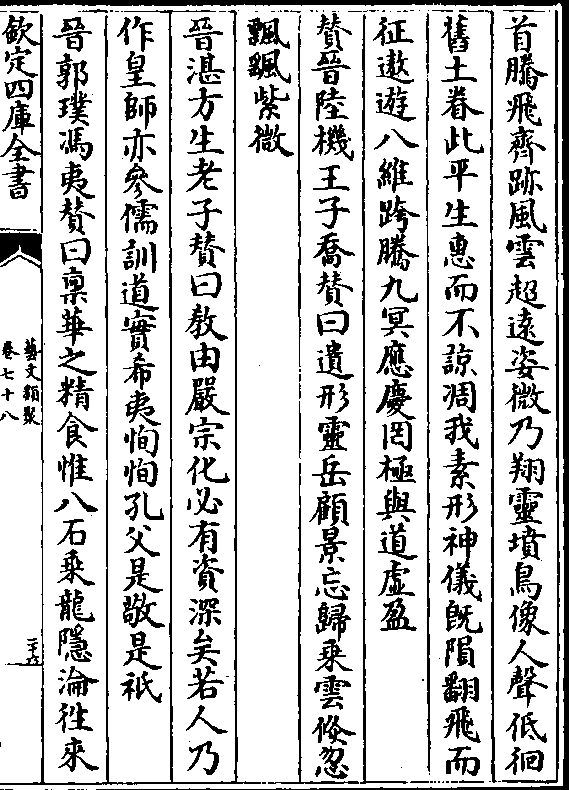 首騰飛齊跡風雲超遠姿微乃翔靈墳鳥像人聲低徊
舊土眷此平生惠而不諒凋我素形神儀既隕翻飛而
征遨遊八維跨騰九冥應慶罔極與道虛盈
贊晉陸機王子喬贊曰遺形靈岳顧景忘歸乘雲倏忽
飄颻紫微
晉湛方生老子贊曰教由嚴宗化必有資深矣若人乃
作皇師亦參儒訓道實希夷恂恂孔父是敬是祇
晉郭璞馮夷贊曰稟華之精食惟八石乘龍隱淪往來
欽定四庫全書
藝文類聚
卷七十八
二十六